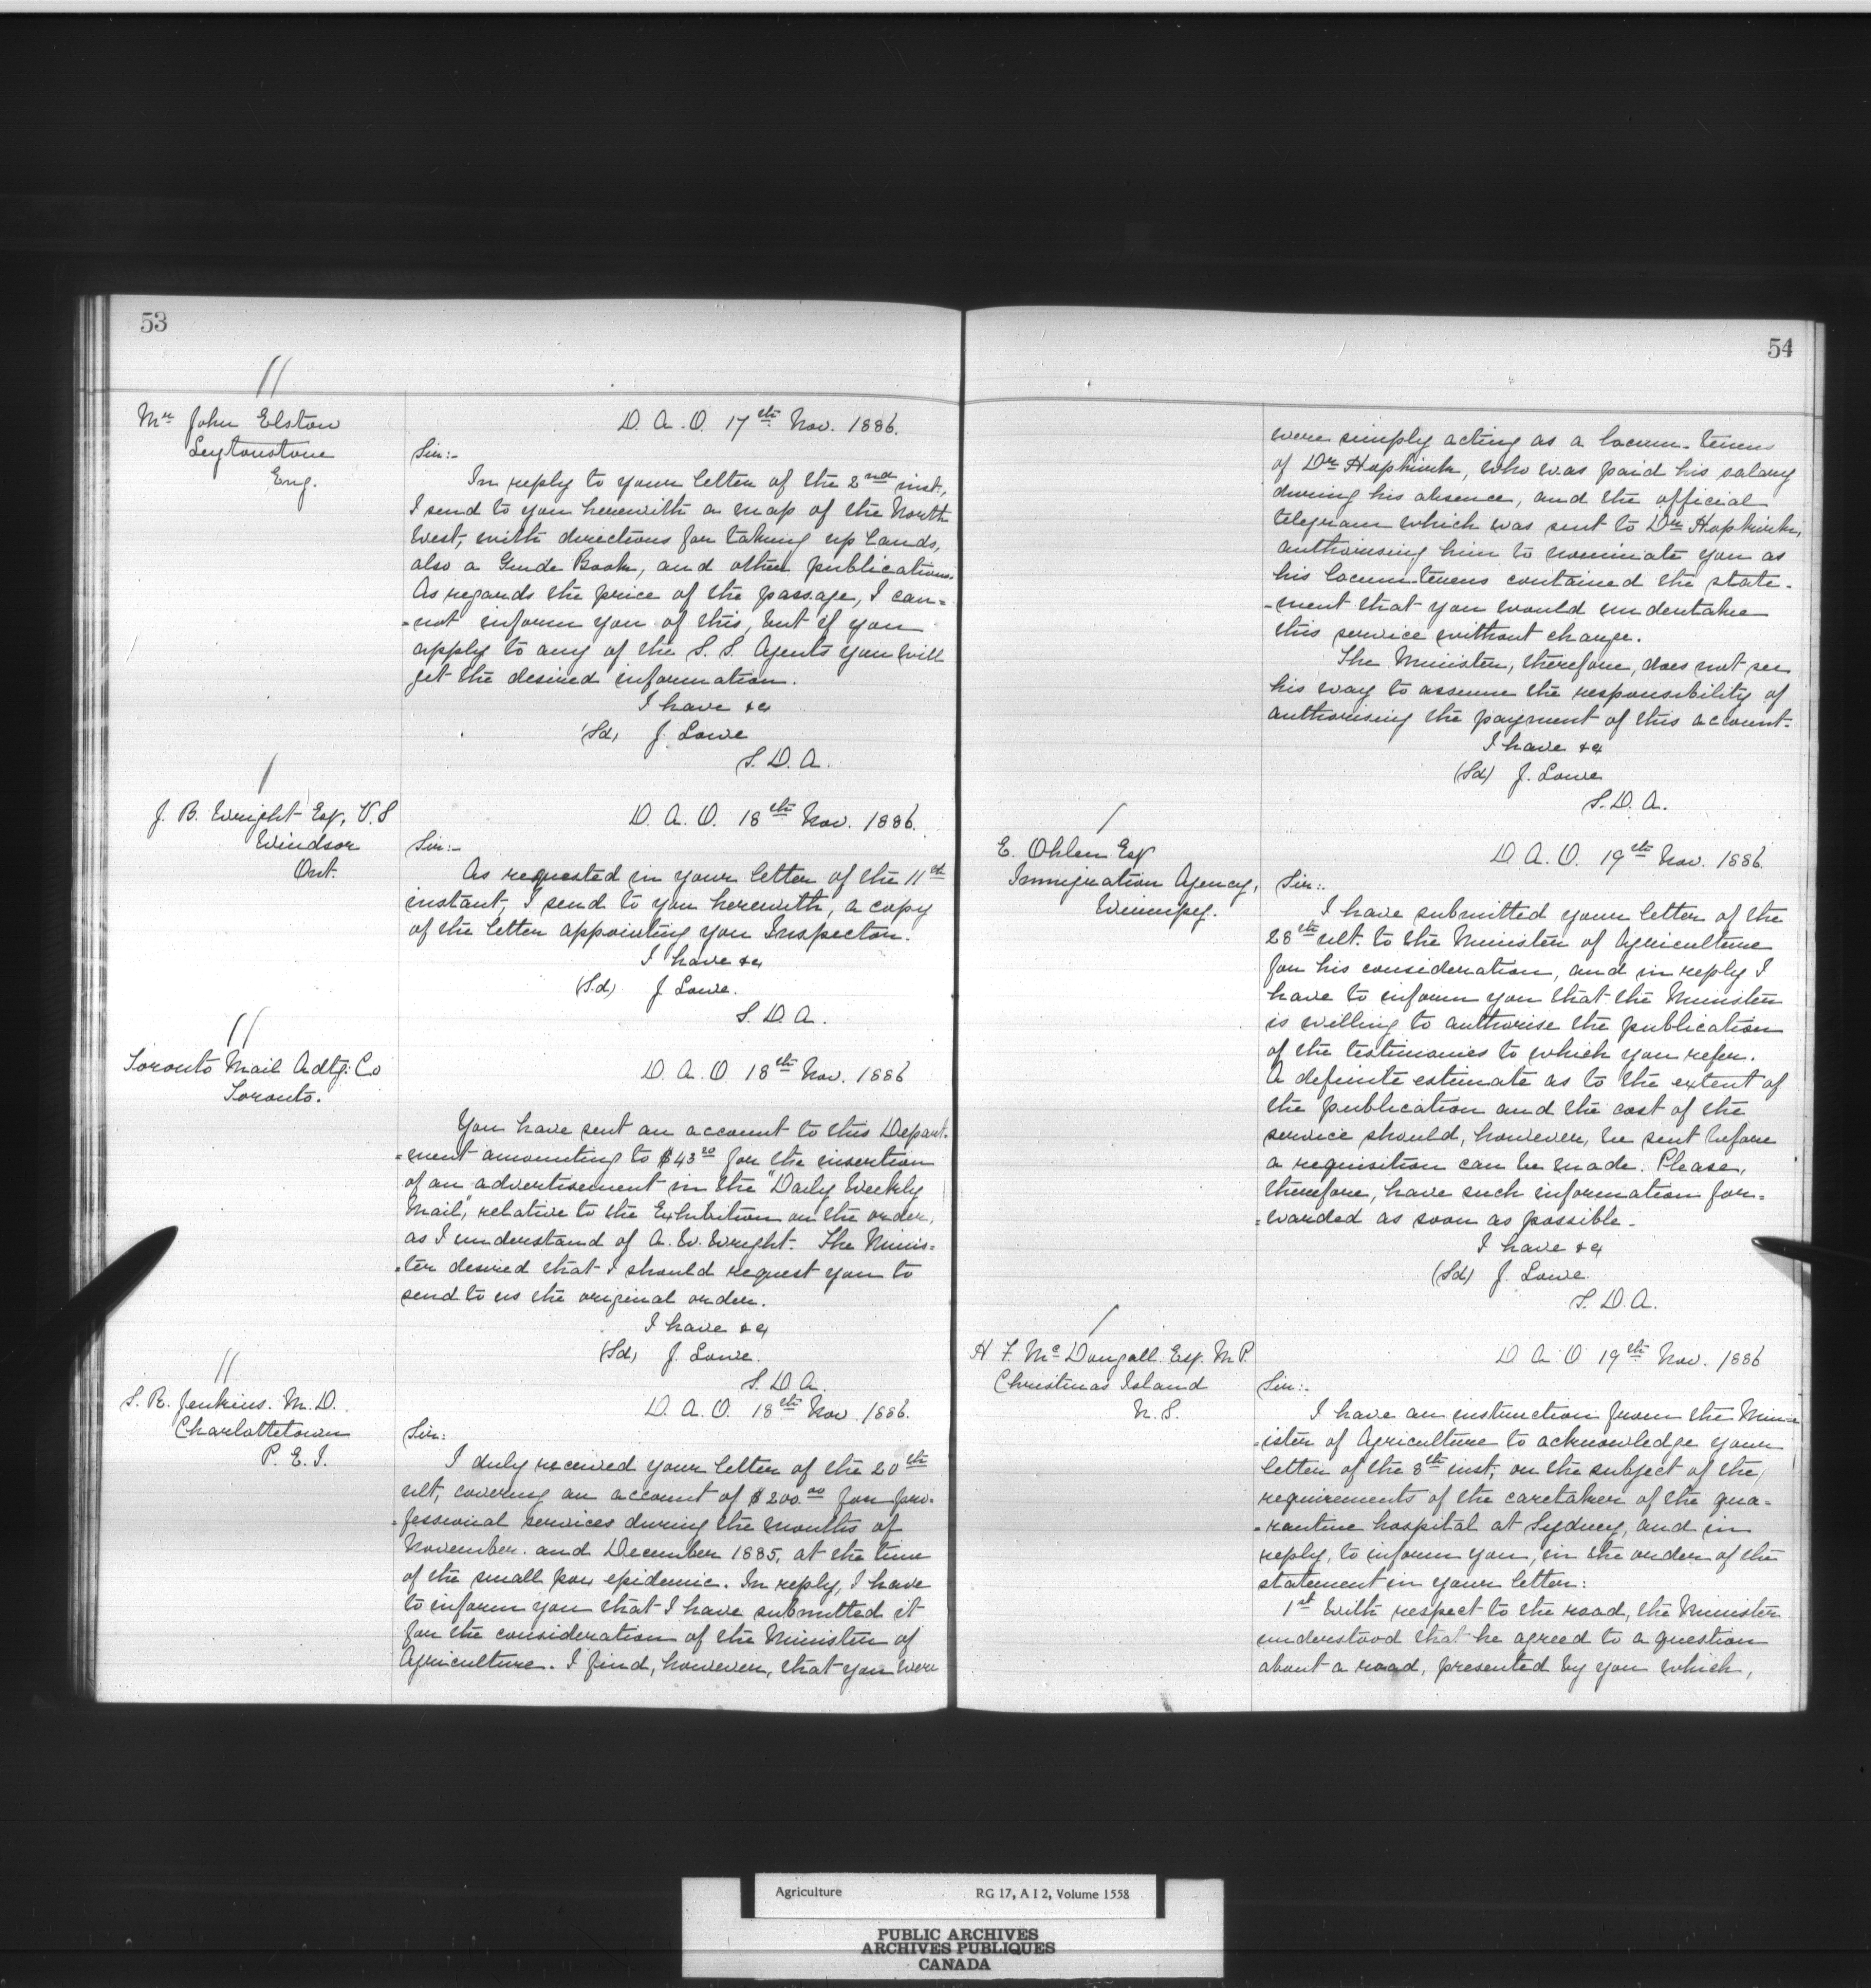 53
Mr John Elston
Leytonstone
Eng.
D. A. O. 17th Nov. 1886.
Sir:-
In reply to your letter of the 2nd inst,
I send to you herewith a map of the North
West, with directions for taking up lands,
also a Guide Book, and other publications.
As regards the price of the passage, I can=
=not inform you of this, but if you
apply to any of the S. S. Agents you will
get the desired information.
I have &c
(Sd) J. Lowe
S. D. A.
J. B. Wright Esq, V.S
Windsor
Ont.
D. A. O. 18th Nov. 1886.
Sir:-
As requested in your letter of the 11th
instant, I send to you herewith, a copy
of the letter appointing you Inspector.
I have &c
(S.d) J. Lowe.
S. D. A.
Toronto Mail Adtg: Co
Toronto.
D. A. O. 18th Nov. 1886
You have sent an account to this Depart-
=ment amounting to $43 20 for the insertion
of an advertisement in the "Daily Weekly
Mail," relative to the Exhibition on the order,
as I understand of A. W. Wright. The Minis=
=ter desired that I should request you to
send to us the original order.
I have &c
(Sd) J. Lowe.
S. D. A.
S. R. Jenkins. M. D.
Charlottetown
P. E. I.
D. A. O. 18th Nov 1886.
Sir:
I duly received your letter of the 20th
ult, covering an account of $200.00 for pro-
=fessional services during the months of
November. and December 1885, at the time
of the small pox epidemic. In reply, I have
to inform you that I have submitted it
for the consideration of the Minister of
Agriculture. I find, however, that you were
54
were simply acting as a locum-tenens
of Dr Hopkirk, who was paid his salary
during his absence, and the official
telegram which was sent to Dr Hopkirk,
authorising him to nominate you as
his locum-tenens contained the state-
-ment that you would undertake
this service without charge.
The Minister, therefore, does not see
his way to assume the responsibility of
authorising the payment of this account.
I have &c
(Sd) J. Lowe
S. D. A.
E. Ohlen Esq
Immigration Agency,
Winnipeg.
D. A. O. 19th Nov. 1886.
Sir:-
I have submitted your letter of the
28th ult. to the Minister of Agriculture
for his consideration, and in reply I
have to inform you that the Minister
is willing to authorise the publication
of the testimonies to which you refer.
A definite estimate as to the extent of
the publication and the cost of the
service should, however, be sent before
a requisition can be made. Please,
therefore, have such information for=
=warded as soon as possible.
I have &c
(Sd) J. Lowe
S. D. A.
H F. McDougall. Esq. M.P.
Christmas Island
N. S.
D. A. O 19th Nov. 1886
Sir:-
I have an instruction from the Min=
=ister of Agriculture to acknowledge your
letter of the 8th inst, on the subject of the
requirements of the caretaker of the qua=
=rantine hospital at Sydney, and in
reply, to inform you, in the order of the
statement in your letter:
1st With respect to the road, the Minister
understood that he agreed to a question
about a road, presented by you which,
Agriculture
RG 17, A I 2, Volume 1558
PUBLIC ARCHIVES
ARCHIVES PUBLIQUES
CANADA